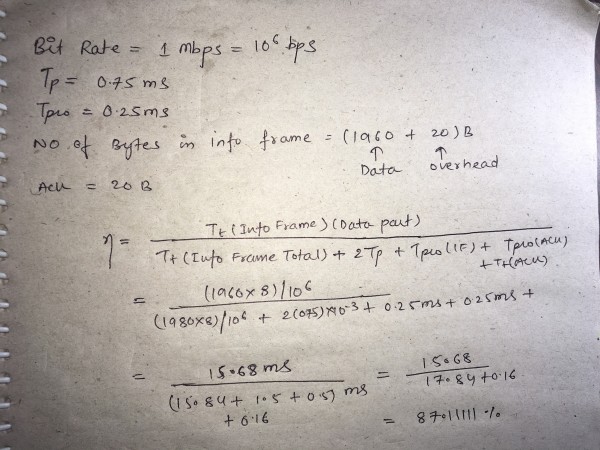 Bit Rate = 1 Mbps = 10⁶ bps
Tp = 0.75 ms
Tpro = 0.25ms
NO of Bytes in info frame = (1960 + 20)B
↑ ↑
Data overhead
Ack = 20 B
η = Tt (Info Frame) (Data part)
Tt (Info Frame Total) + 2Tp + Tpro(IF) + Tpro(ACK)
+ Tt(ACK)
= (1960×8)/10⁶
(1980×8)/10⁶ + 2(0.75)×10⁻³ + 0.25ms + 0.25ms +
= 15.68 ms = 15.68
(15.84 + 1.5 + 0.5) ms 17.84+0.16
+ 0.16
= 87.11111 %